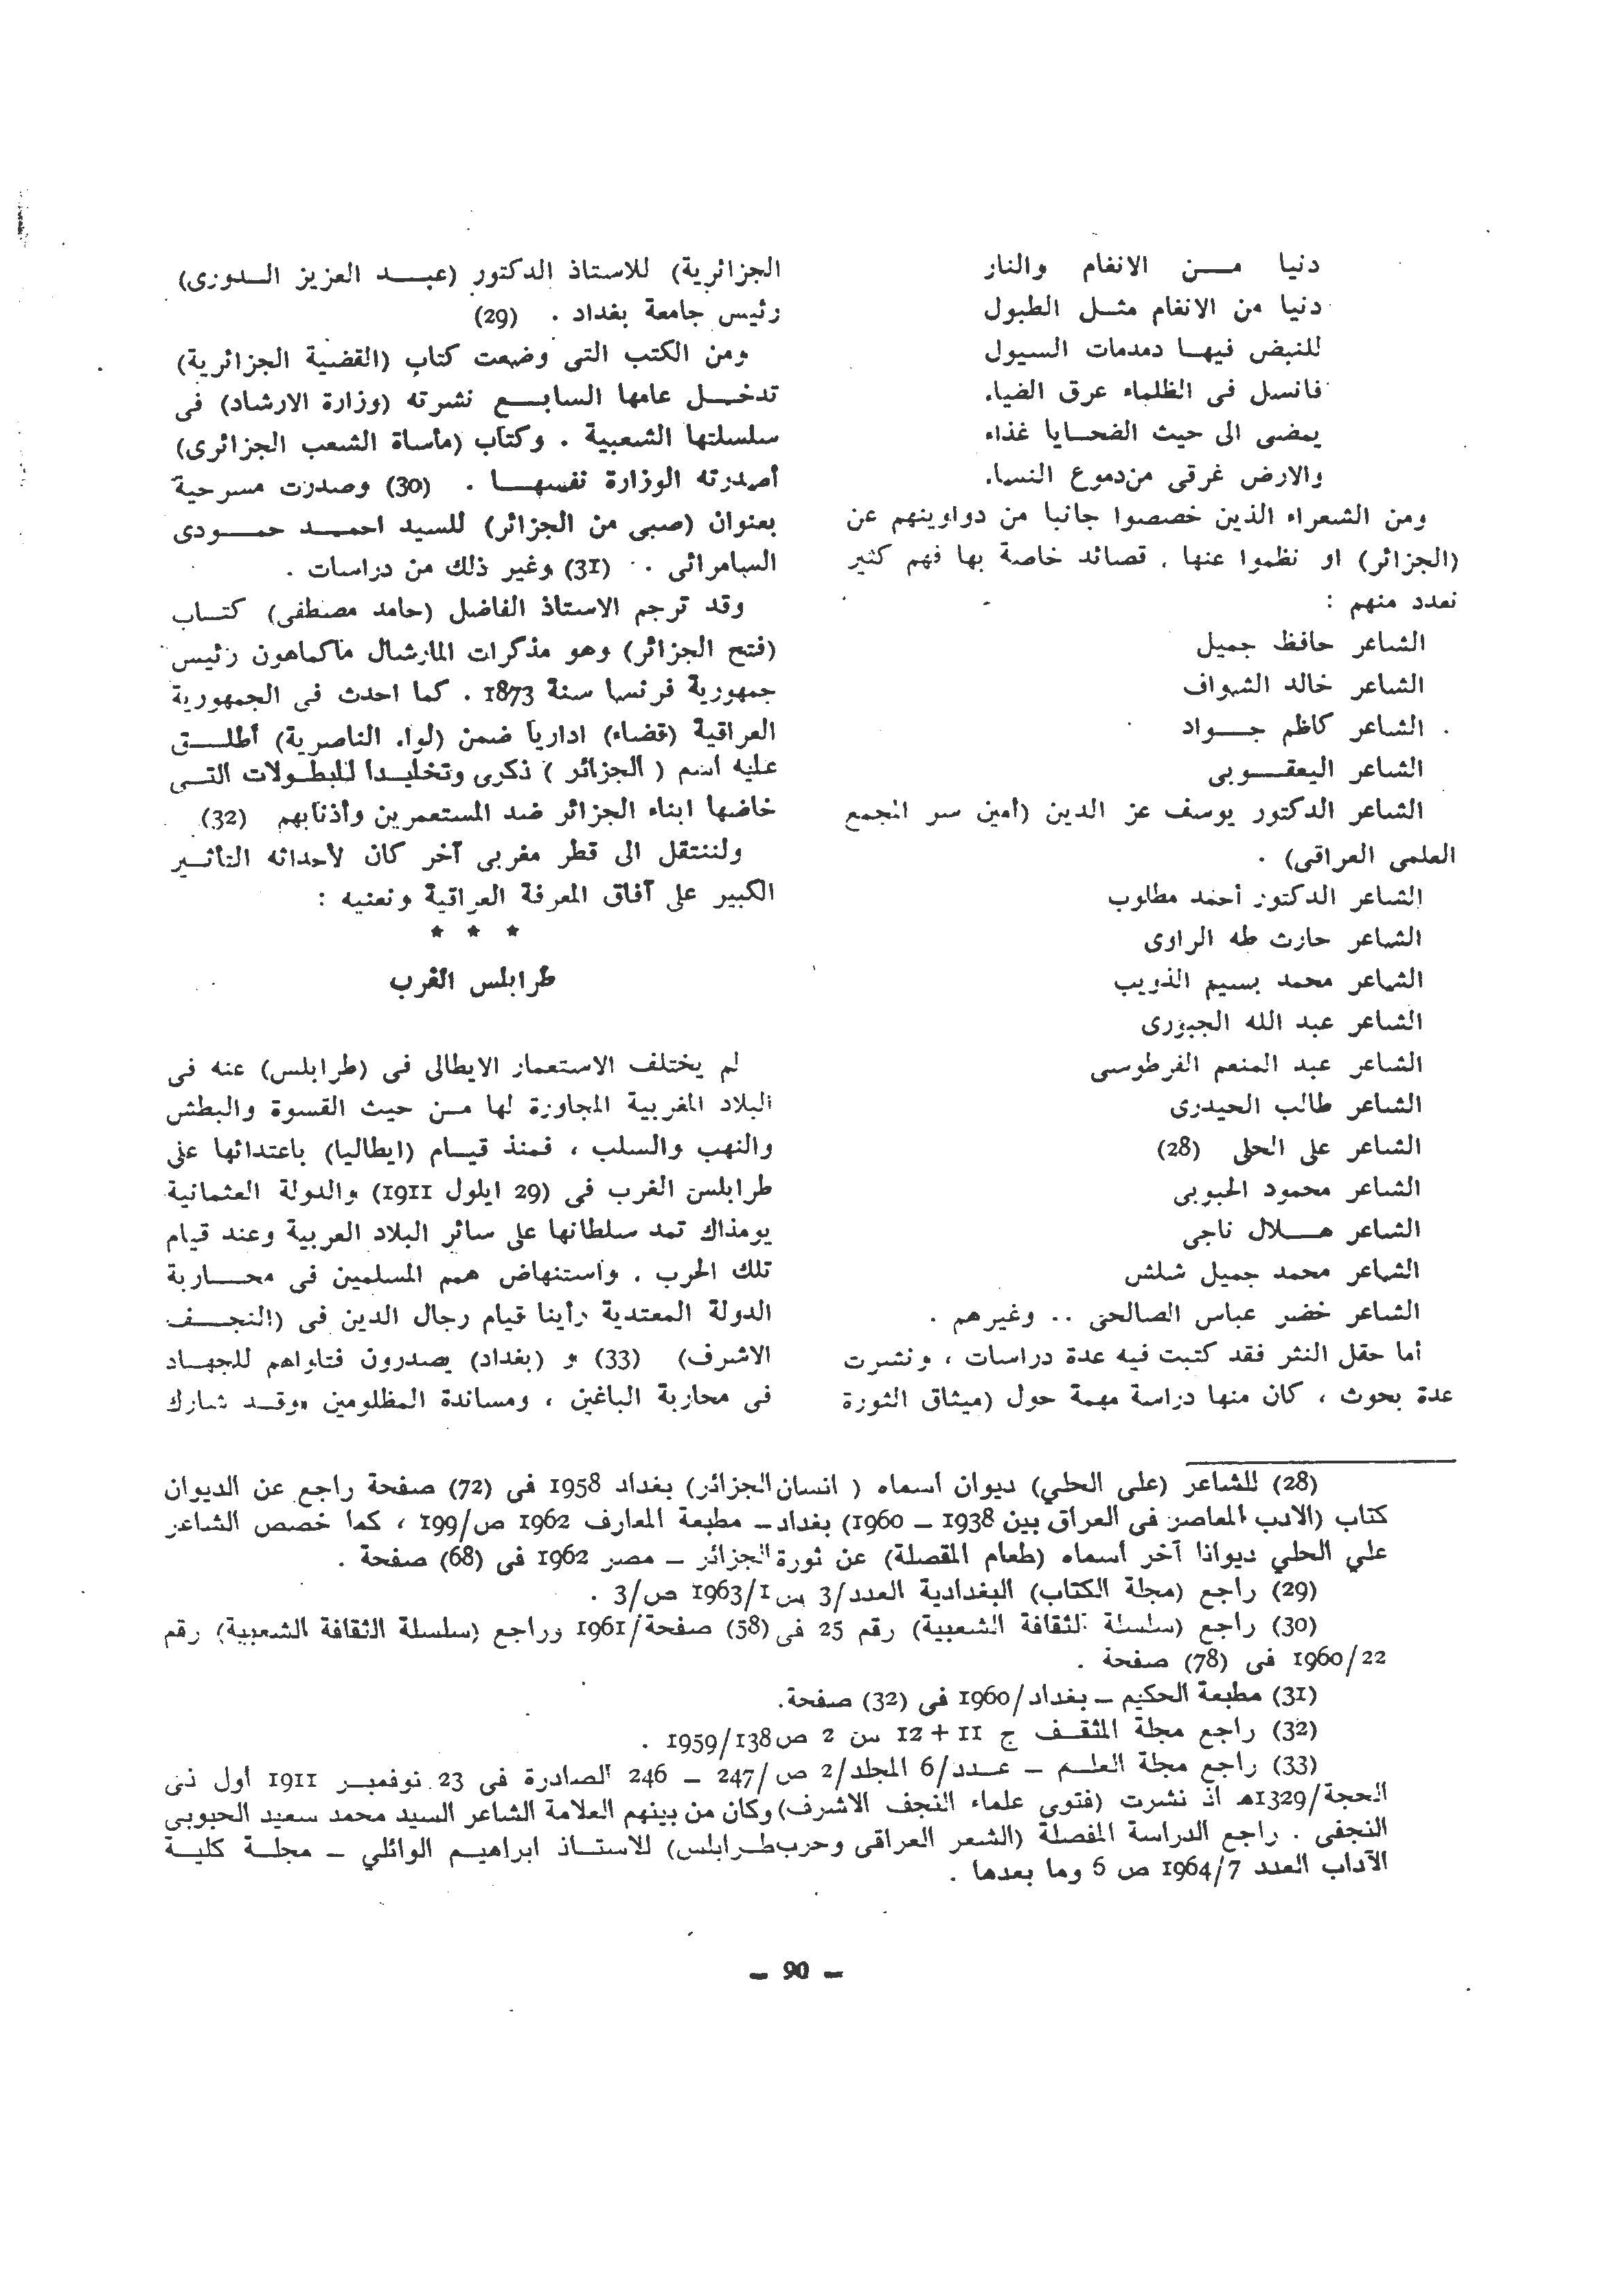 دنيا مـــن الانغام والنار
دنيا من الانغام مثـــل الطبول
للنبض فيهـــا دمدمات السيول
فانسل فى الظلماء عرق الضياء
يمضى الى حيث الضحـــايا غذاء
والارض غرقى من دموع النساء
ومن الشعراء الذين خصصوا جانبا من دواوينهم عن
(الجزائر) او نظموا عنها ، قصائد خاصة بها فهم كثير
نعدد منهم :
الشاعر حافظ جميل
الشاعر خالد الشواف
الشاعر كاظم جـــواد
الشاعر اليعقـــوبى
الشاعر الدكتور يوسف عز الدين (أمين سر المجمع
العلمى العراقى) .
الشاعر الدكتور أحمد مطلوب
الشاعر حارث طه الراوى
الشاعر محمد بسيم الذويب
الشاعر عبد الله الجبورى
الشاعر عبد المنعم الفرطوسى
الشاعر طالب الحيدرى
الشاعر على الحلى (28)
الشاعر محمود الحبوبى
الشاعر هـــلال ناجى
الشاعر محمد جميل شلش
الشاعر خضر عباس الصالحى .. وغيرهم .
أما حقل النثر فقد كتبت فيه عدة دراسات ، ونشرت
عدة بحوث ، كان منها دراسة مهمة حول (ميثاق الثورة
الجزائرية) للاستاذ الدكتور (عبـــد العزيز الـــدورى)
رئيس جامعة بغداد . (29)
ومن الكتب التى وضعت كتاب (القضية الجزائرية)
تدخـــل عامها السابـــع نشرته (وزارة الارشاد) فى
سلسلتها الشعبية . وكتاب (مأساة الشعب الجزائرى)
أصدرته الوزارة نفسهـــا . (30) وصدرت مسرحية
بعنوان (صبى من الجزائر) للسيد احمـــد حمـــودى
السامرائى . (31) وغير ذلك من دراسات .
وقد ترجم الاستاذ الفاضل (حامد مصطفى) كتـــاب
(فتح الجزائر) وهو مذكرات المارشال ماكماهون رئيس
جمهورية فرنسا سنة 1873 . كما احدث فى الجمهورية
العراقية (قضاء) اداريا ضمن (لواء الناصرية) أطلـــق
عليه اسم ( الجزائر ) ذكرى وتخليـــدا للبطولات التـــى
خاضها ابناء الجزائر ضد المستعمرين وأذنابهم (32)
ولننتقل الى قطر مغربى آخر كان لأحداثه التأثـــير
الكبير على آفاق المعرفة العراقية ونعنيه :
* * *
طرابلس الغرب
لم يختلف الاستعمار الايطالى فى (طرابلس) عنه فى
البلاد المغربية المجاورة لها مـــن حيث القسوة والبطش
والنهب والسلب ، فمنذ قيـــام (ايطاليا) باعتدائها على
طرابلس الغرب فى (29 ايلول 1911) والدولة العثمانية
يومذاك تمد سلطانها على سائر البلاد العربية وعند قيام
تلك الحرب . واستنهاض همم المسلمين فى محـــاربة
الدولة المعتدية رأينا قيام رجال الدين فى (النجـــف
الاشرف) (33) و (بغداد) يصدرون فتاواهم للجهـــاد
فى محاربة الباغين ، ومساندة المظلومين وقـــد شارك
(28) للشاعر (على الحلي) ديوان أسماه ( انسان الجزائر) بغداد 1958 فى (72) صفحة راجع عن الديوان
كتاب (الادب المعاصر فى العراق بين 1938 – 1960) بغداد – مطبعة المعارف 1962 ص/199 ، كما خصص الشاعر
علي الحلي ديوانا آخر أسماه (طعام المقصلة) عن ثورة الجزائر – مصر 1962 فى (68) صفحة .
(29) راجع (مجلة الكتاب) البغدادية العدد/3 س 1963/1 ص/3 .
(30) راجع (سلسلة الثقافة الشعبية) رقم 25 فى (58) صفحة/1961 وراجع (سلسلة الثقافة الشعبية) رقم
1960/22 فى (78) صفحة .
(31) مطبعة الحكيم – بغداد/1960 فى (32) صفحة.
(32) راجع مجلة المثقـــف ج 11 + 12 س 2 ص 1959/138 .
(33) راجع مجلة العلـــم – عـــدد/6 المجلد/2 ص/247 – 246 الصادرة فى 23 نوفمبـــر 1911 أول ذى
الحجة/1329هـ اذ نشرت (فتوى علماء النجف الاشرف) وكان من بينهم العلامة الشاعر السيد محمد سعيد الحبوبى
النجفى . راجع الدراسة المفصلة (الشعر العراقى وحرب طـــرابلس) للاستـــاذ ابراهيـــم الوائلي – مجلـــة كليـــة
الآداب العدد 1964/7 ص 6 وما بعدها .
– 90 –